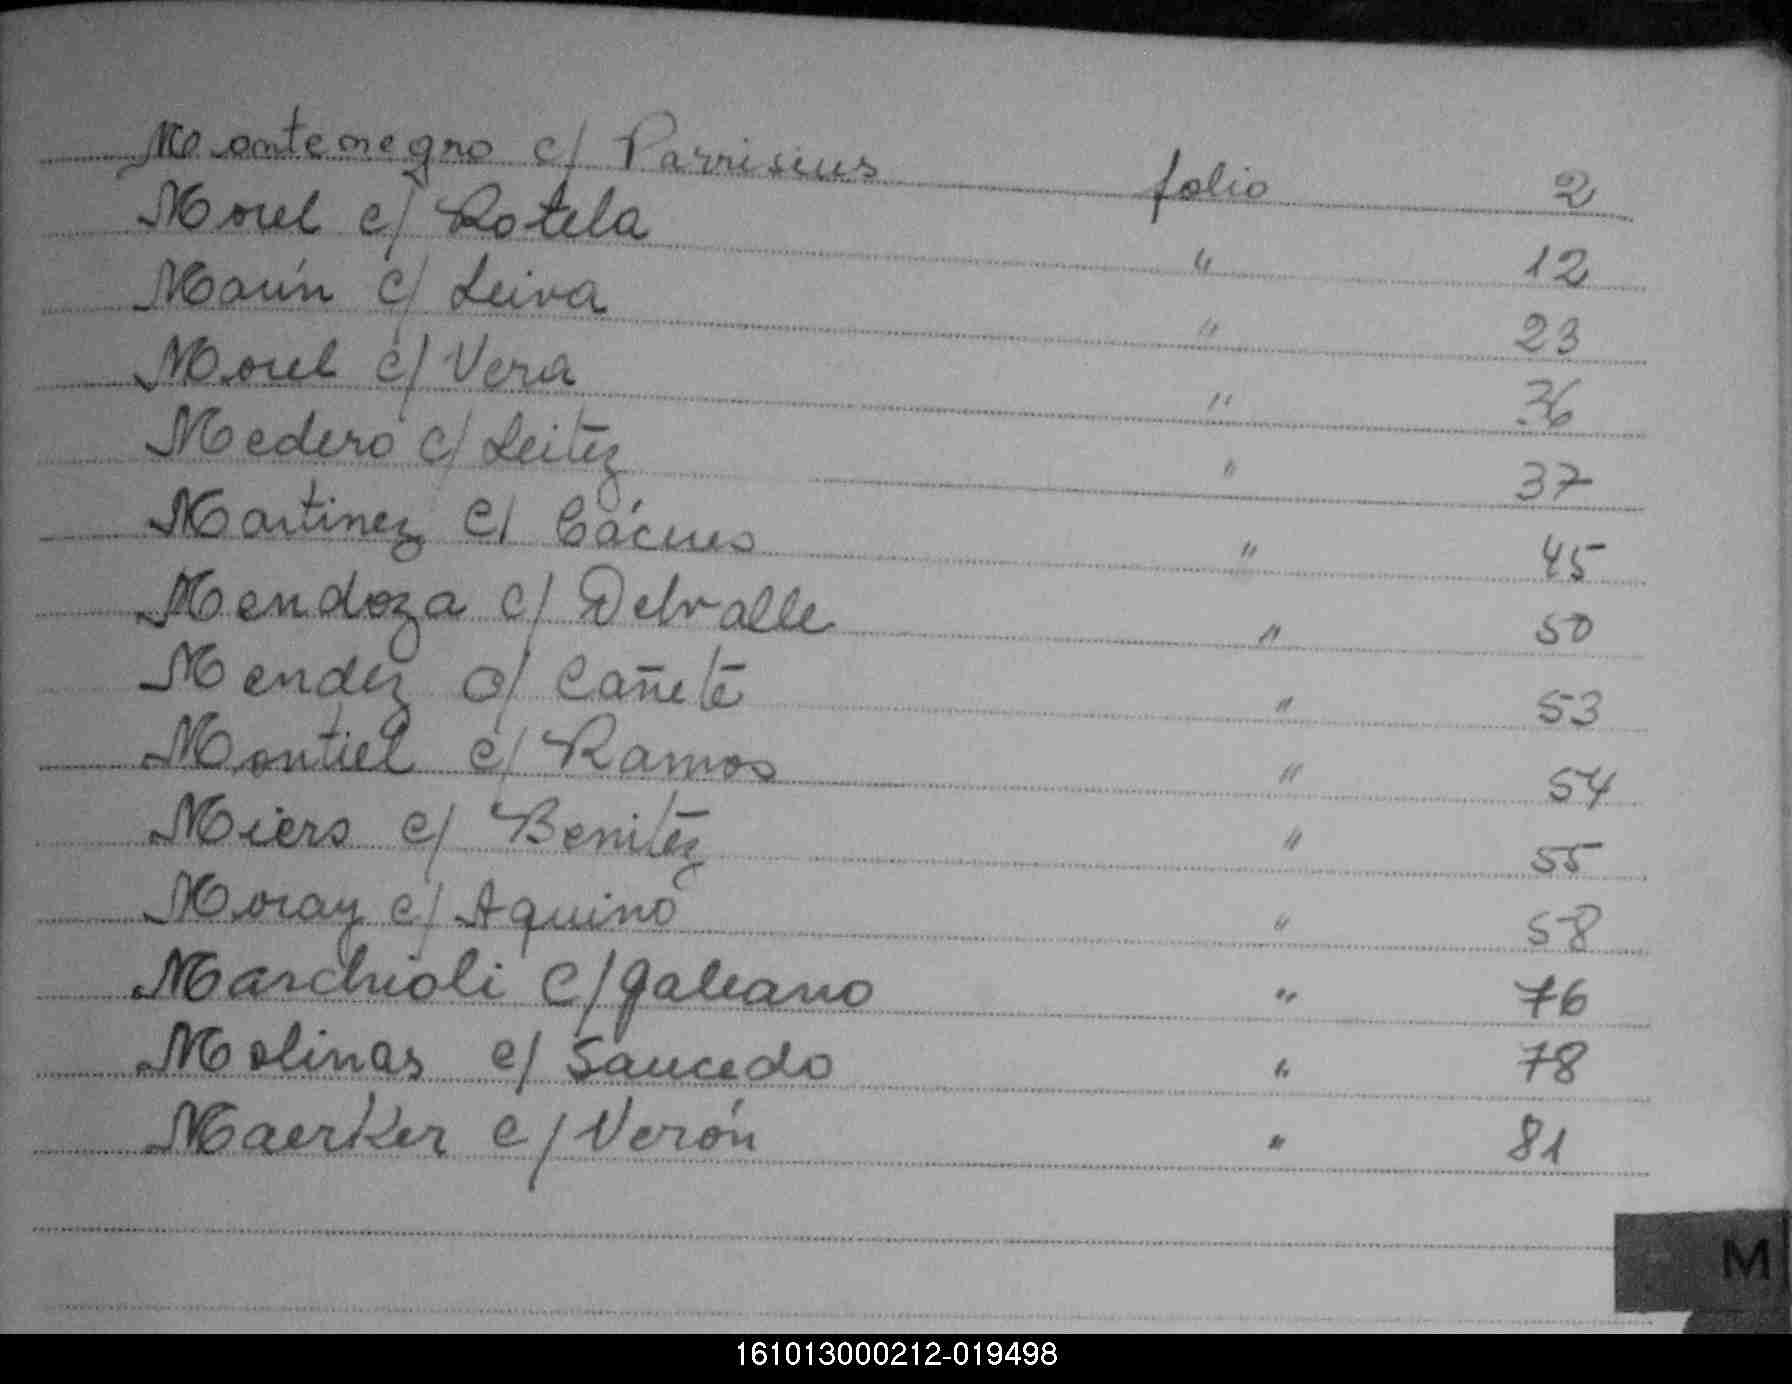 Montenegro c/ Parrisius folio 2
Morel c/ Rotela " 12
Marín c/ Leiva " 23
Morel c/ Vera " 36
Medero c/ Leitez " 37
Martinez c/ Cáceres " 45
Mendoza c/ Delvalle " 50
Mendez c/ Cañete " 53
Montiel c/ Ramos " 54
Miers c/ Benitez " 55
Moray c/ Aquino " 58
Marchioli c/ Galeano " 76
Molinas c/ Saucedo " 78
Maerker c/ Verón " 81
M
161013000212-019498